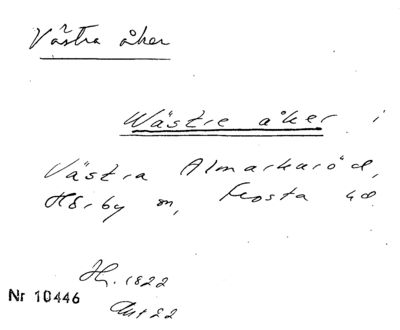 Västra åker
Wästre åker i
Västra Almarkaröd,
Hörby sn, Frosta hd
Hy. 1822
Nr 10446
Akt 22